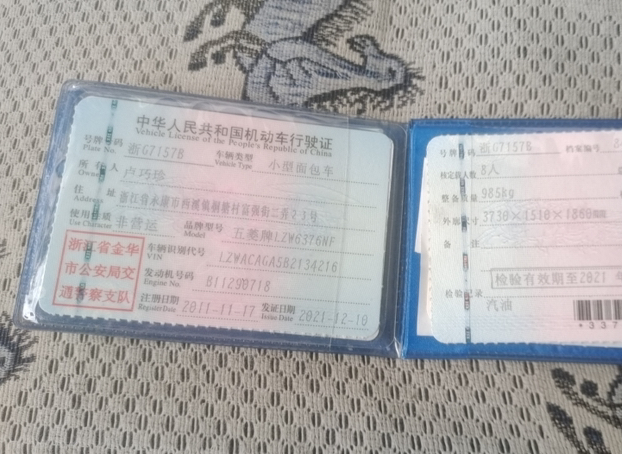 中华人民共和国机动车行驶证
Vehicle License of the People's Republic of China
号牌号码 浙G7157B 车辆类型 小型面包车
Plate No. Vehicle Type
所有人 卢巧珍
Owner
住址 浙江省永康市
Address
使用性质 非营运 品牌型号 五菱牌LZW6376NF
Use Character Model
浙江省金华
市公安局交
通警察支队
车辆识别代号 LZWACAGA5B2134216
VIN
发动机号码 B11290718
Engine No.
注册日期 2011-11-17 发证日期 2021-12-10
Register Date Issue Date
号牌号码 浙G7157B 档案编号
核定载人数 8人
整备质量 985kg
外廓尺寸 3730×1510×1860
备注
检验有效期至2021
检验记录
汽油